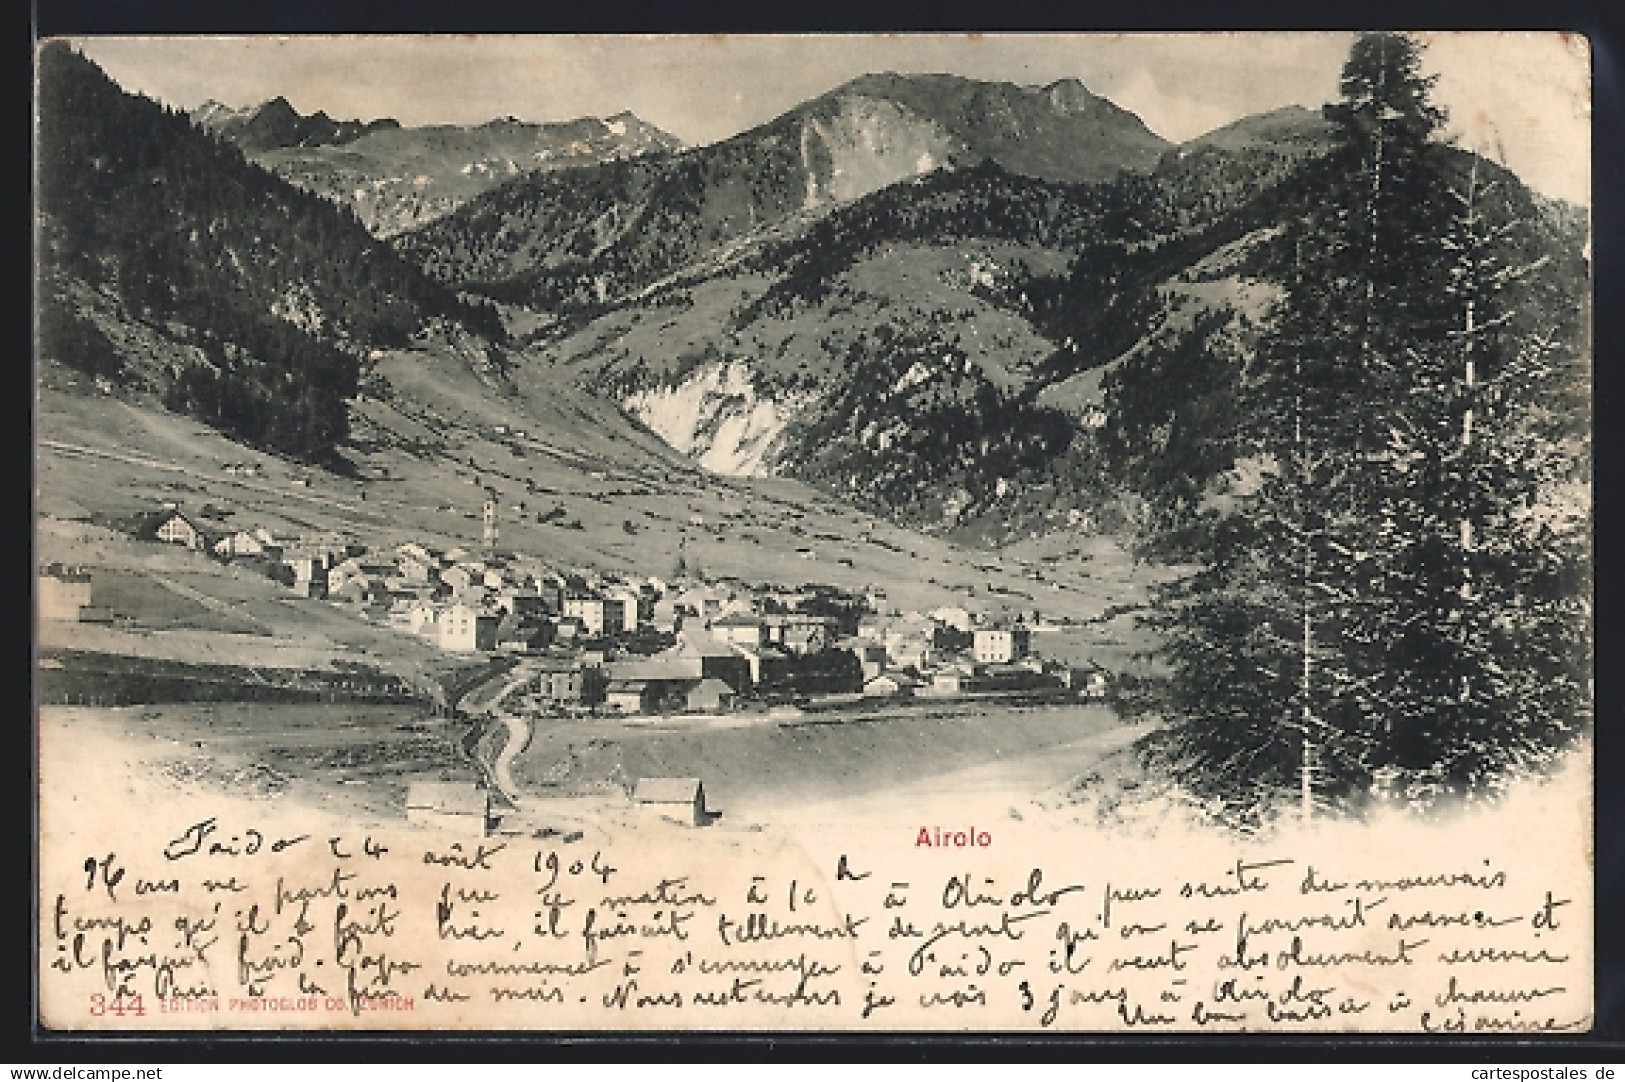 Airolo
Faido 24 août 1904
Nous ne partons que ce matin à 10 h à Airolo par suite du mauvais
temps qu'il a fait hier, il faisait tellement de vent qu'on ne pouvait avancer et
il faisait froid. Papa commence à s'ennuyer à Faido il veut absolument revenir
à Paris à la fin du mois. Nous resterons je crois 3 jours à Airolo
Un bon baiser à chacun
344 EDITION PHOTOGLOB CO. ZÜRICH
cartespostales de